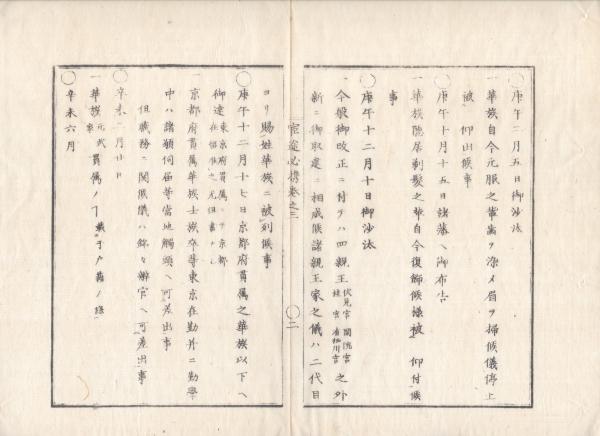 ○庚午二月五日御沙汰
一華族自今元服之輩歯ヲ染メ眉ヲ掃候儀停止
被 仰出候事
○庚午十月十五日諸藩ヘ御布告
一華族隠居剃髪之輩自今復飾候様被 仰付候
事
○庚午十二月十日御沙汰
一今般御改正ニ付テハ四親王 伏見宮 閑院宮 桂宮 有栖川宮 之外
新ニ御取建ニ相成候諸親王家之儀ハ二代目
官途必携巻之三
○二
ヨリ賜姓華族ニ被列候事
○庚午十二月十七日京都府貫属之華族以下ヘ
御達 東京府貫属ハ京都在留准之尤但書ナシ
一京都府貫属華族士族卒等東京在勤并ニ勤学
中ハ諸願伺届等当地触頭ヘ可差出事
但職務ニ関候儀ハ銘々辨官ヘ可差出事
○辛未二月廿日
一華族 元武家 貫属ノ 載于戸籍ノ條
○辛未六月